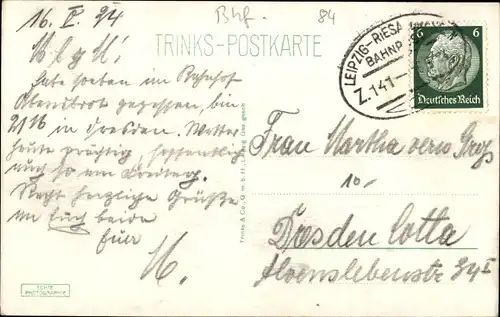 16. V. 34
Bhf.
84
TRINKS-POSTKARTE
LEIPZIG-RIESA
BAHNP
Z. 141
6
6
Deutsches Reich
habe soeben im Bahnhof
Abendbrot gegessen, bin
21 16 in Dresden. Wetter
heute prächtig, hoffentlich
auch so am Dreitag.
Recht herzliche Grüße
an Euch beide
Euer
H.
Frau Martha verw.
10.-
Dresden Cotta
Alvenslebenstr. 34 I
Trinks & Co., G. m. b. H., Leipzig
ECHTE
PHOTOGRAPHIE